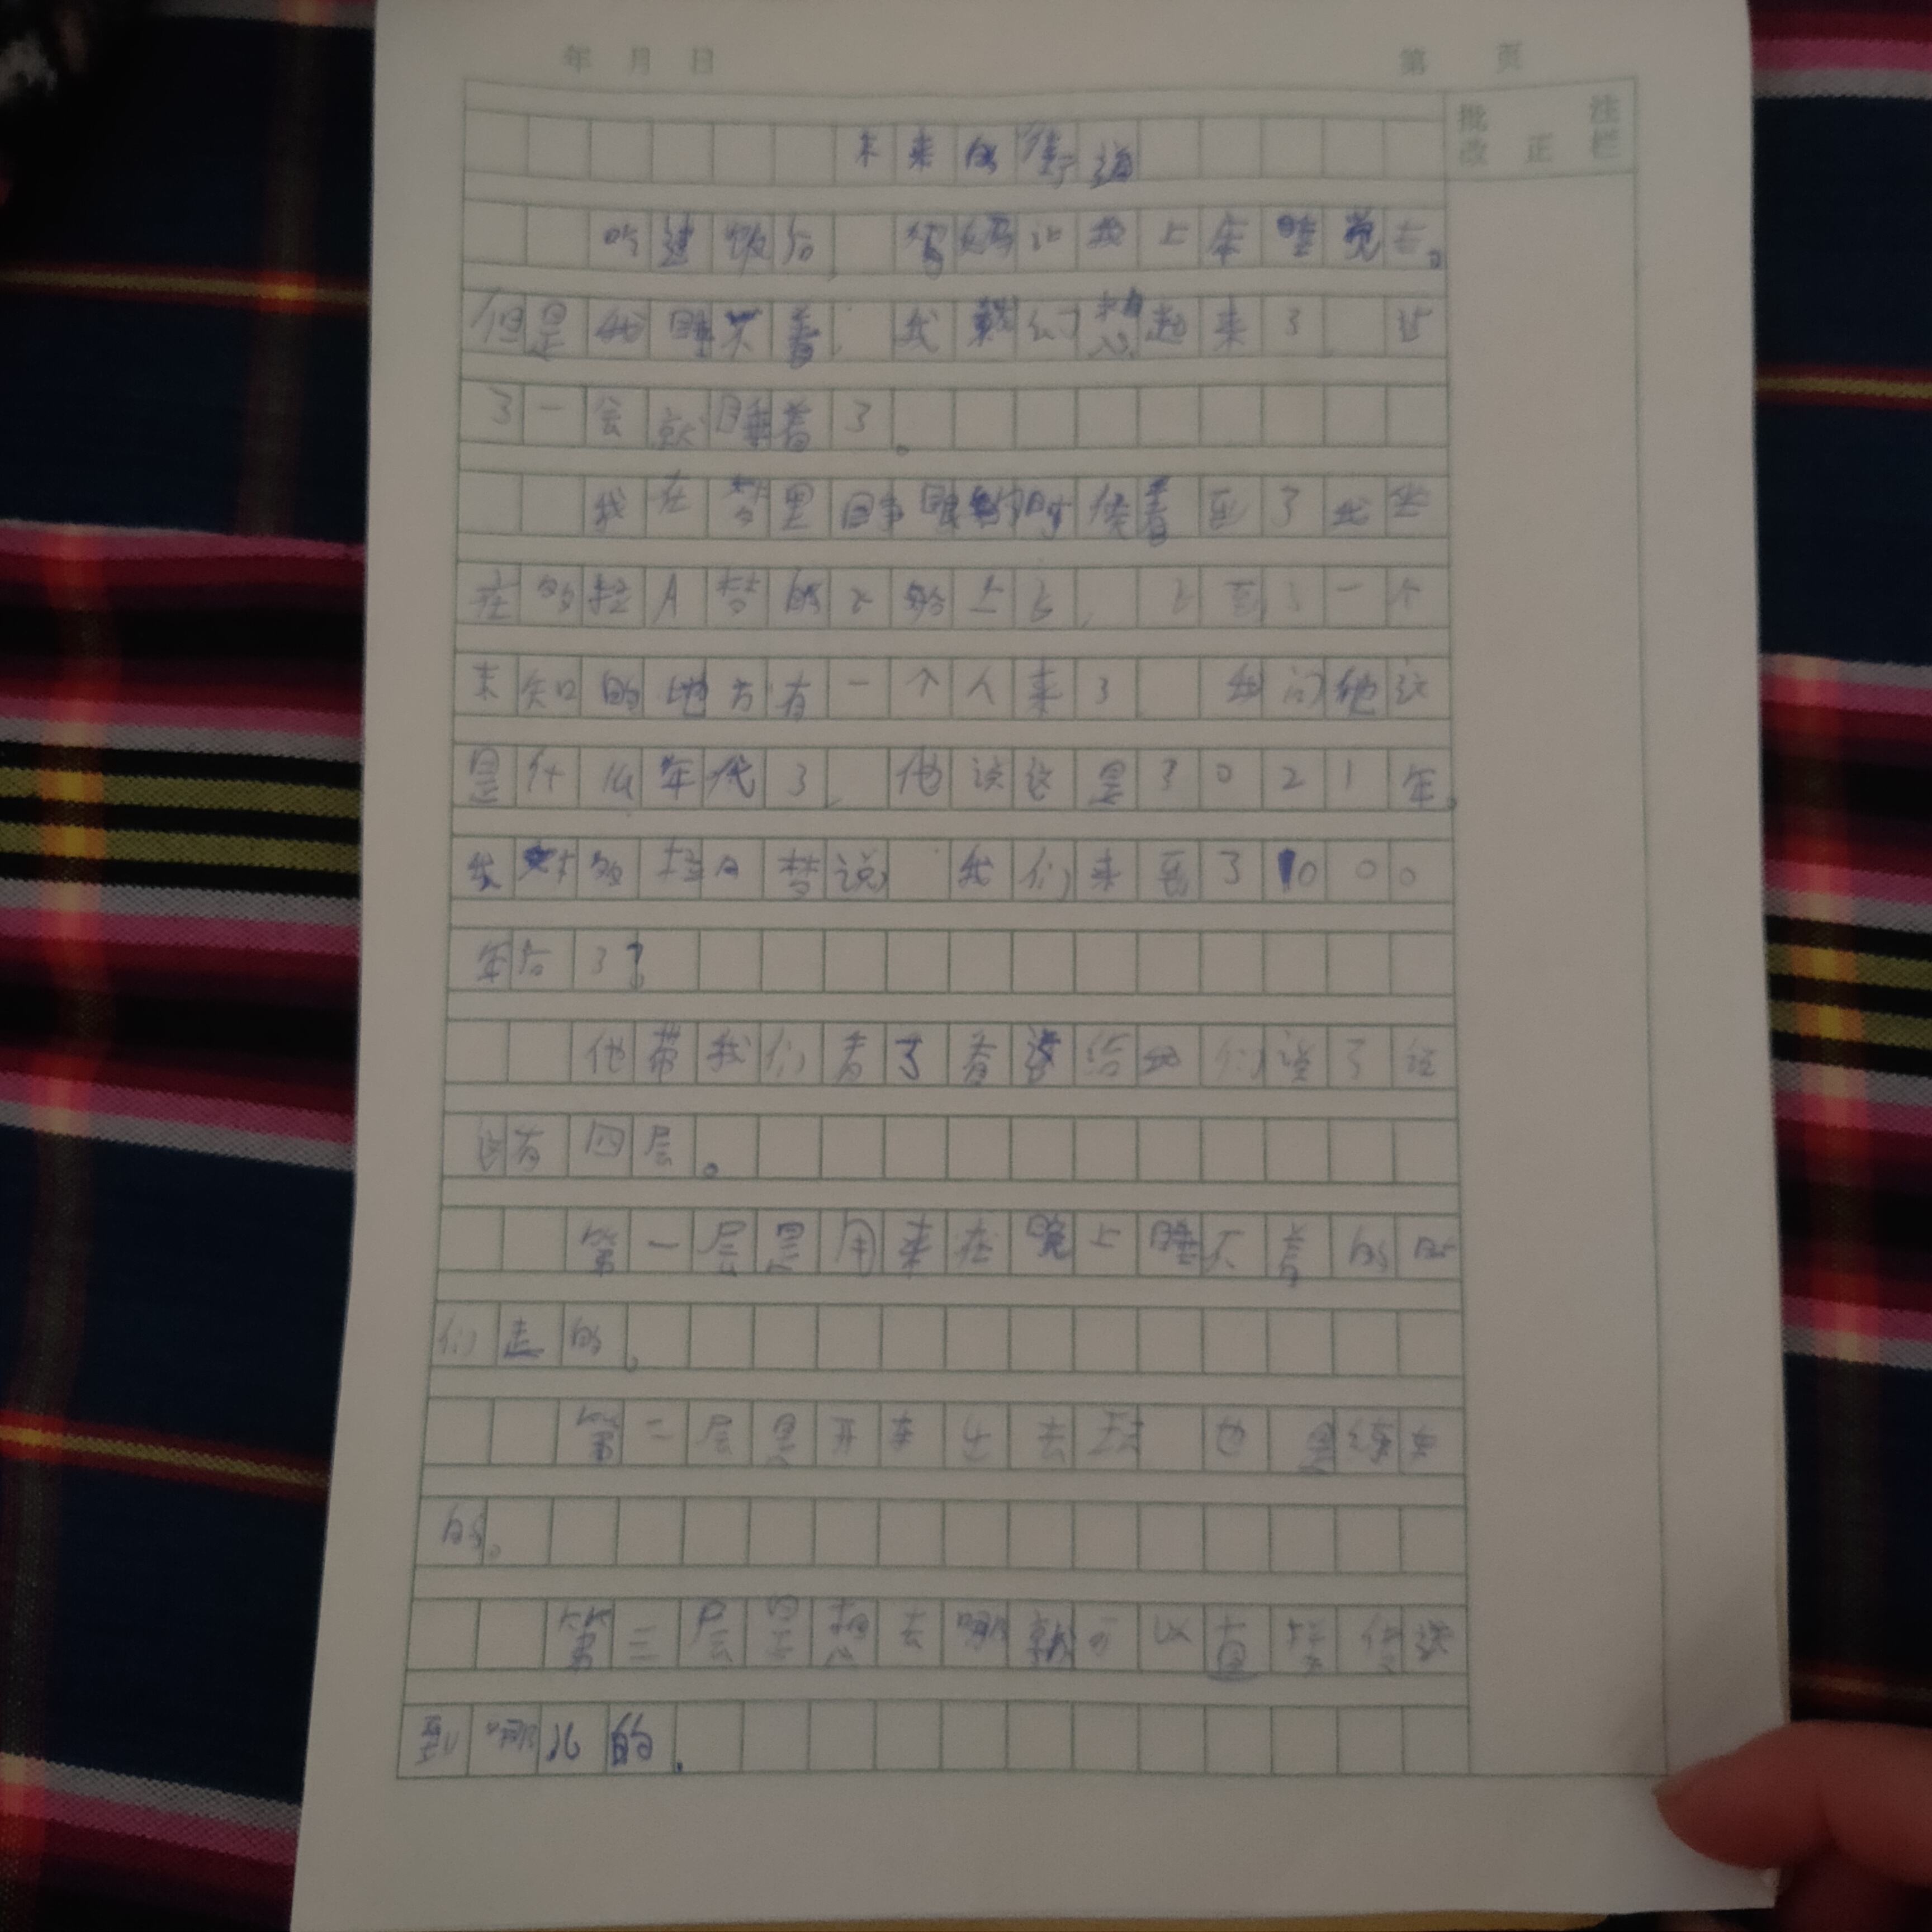 年 月 日 第 页
批改 正 注栏
未来的街道
吃过饭后, 妈让我上床睡觉去。
但是我睡不着, 我就幻想起来了, 过
了一会就睡着了。
我在梦里 看到了我坐
在多拉A梦的 上 , 了一个
未知的地方有一个人来了 我问他这
是什么年代了, 他说这是3021年。
我对多拉A梦说 我们来到了1000
年后了?
他带我们看了看 给我们说了说
这有四层。
第一层是用来在晚上睡不着的
们走的。
第二层是开车出去玩 也是练车
的。
第三层是想去哪就可以直接传送
到哪儿的.